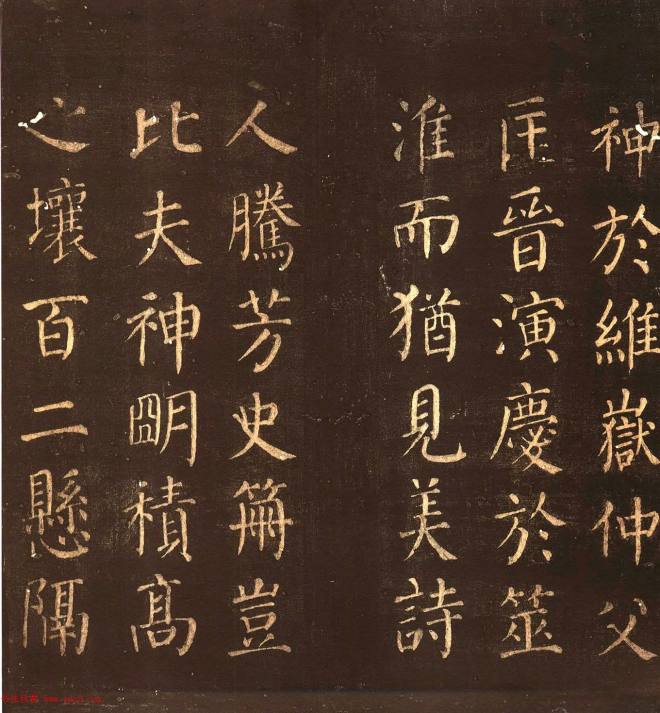 神於維嶽仲父
匡晉演慶於筮
淮而猶見美詩
人騰芳史冊豈
比夫神朙積高
之壤百二懸隔